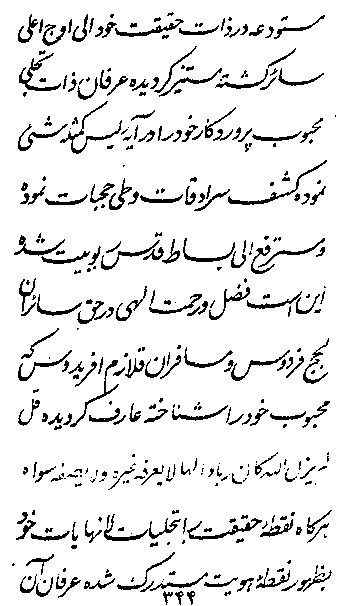 مستودعه در ذات حقیقت خود الی اوج اعلی
سائر گشته مستنیر گردیده عرفان ذات تجلی
محبوب پروردگار خود را در آیه لیس کمثله شئ
نموده کشف سرادقات وطی حجبات نموده
ومسترفع الی بساط قدس ربوبیت شده
این است فضل ورحمت الهی در حق سائران
لجج فردوس ومسافران قلازم افریدوس که
محبوب خود را شناخته عارف گردیده قل
لم یزل الله کان ربا والها لا یعرفه غیره ولا یصفه سواه
هرگاه نقطهٔ حقیقت بتجلیات لانهایات خود
بظهور نقطهٔ هویت مستدرک شده عرفان آن
۳۴۴